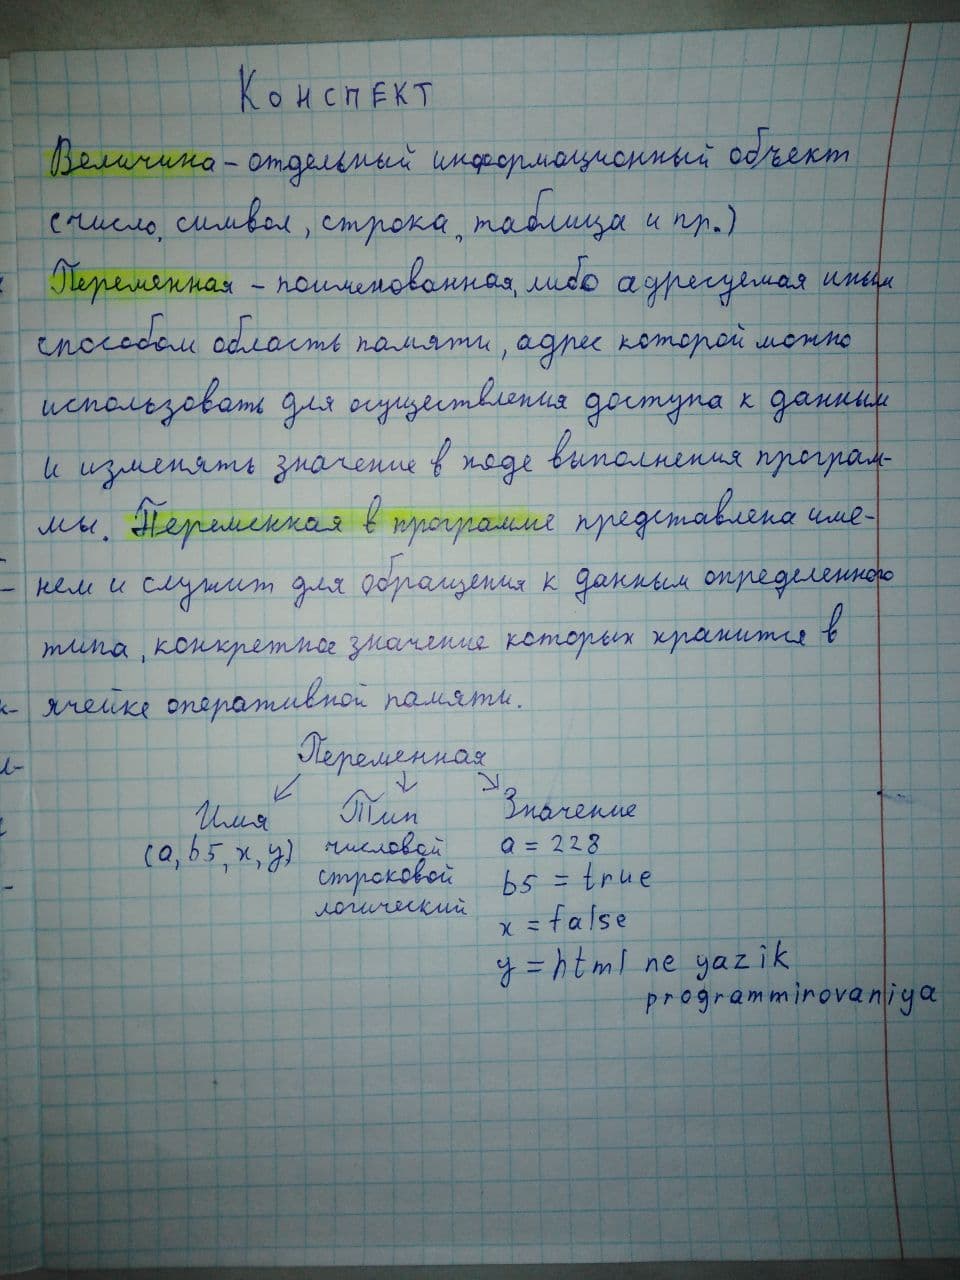 Конспект
Величина - отдельный информационный объект
(число, символ, строка, таблица и пр.)
Переменная - поименованная, либо адресуемая иным
способом область памяти, адрес которой можно
использовать для осуществления доступа к данным
и изменять значение в ходе выполнения програм-
мы. Переменная в программе представлена име-
нем и служит для обращения к данным определенного
типа, конкретное значение которых хранится в
ячейке оперативной памяти.
Переменная
Имя Тип Значение
(a, b5, x, y) числовой a = 228
строковой b5 = true
логический x = false
y = html ne yazik
programmirovaniya